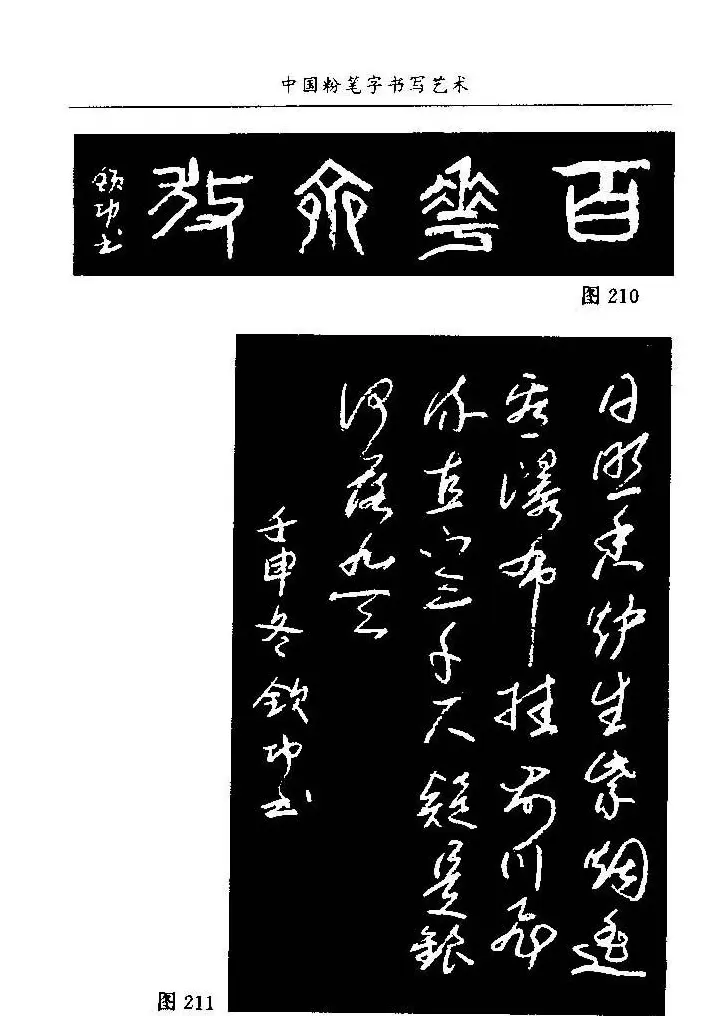 中国粉笔字书写艺术
百花齐放
钦功书
图 210
日照香炉生紫烟遥
看瀑布挂前川飞
流直下三千尺疑是银
河落九天
壬申冬 钦功书
图 211